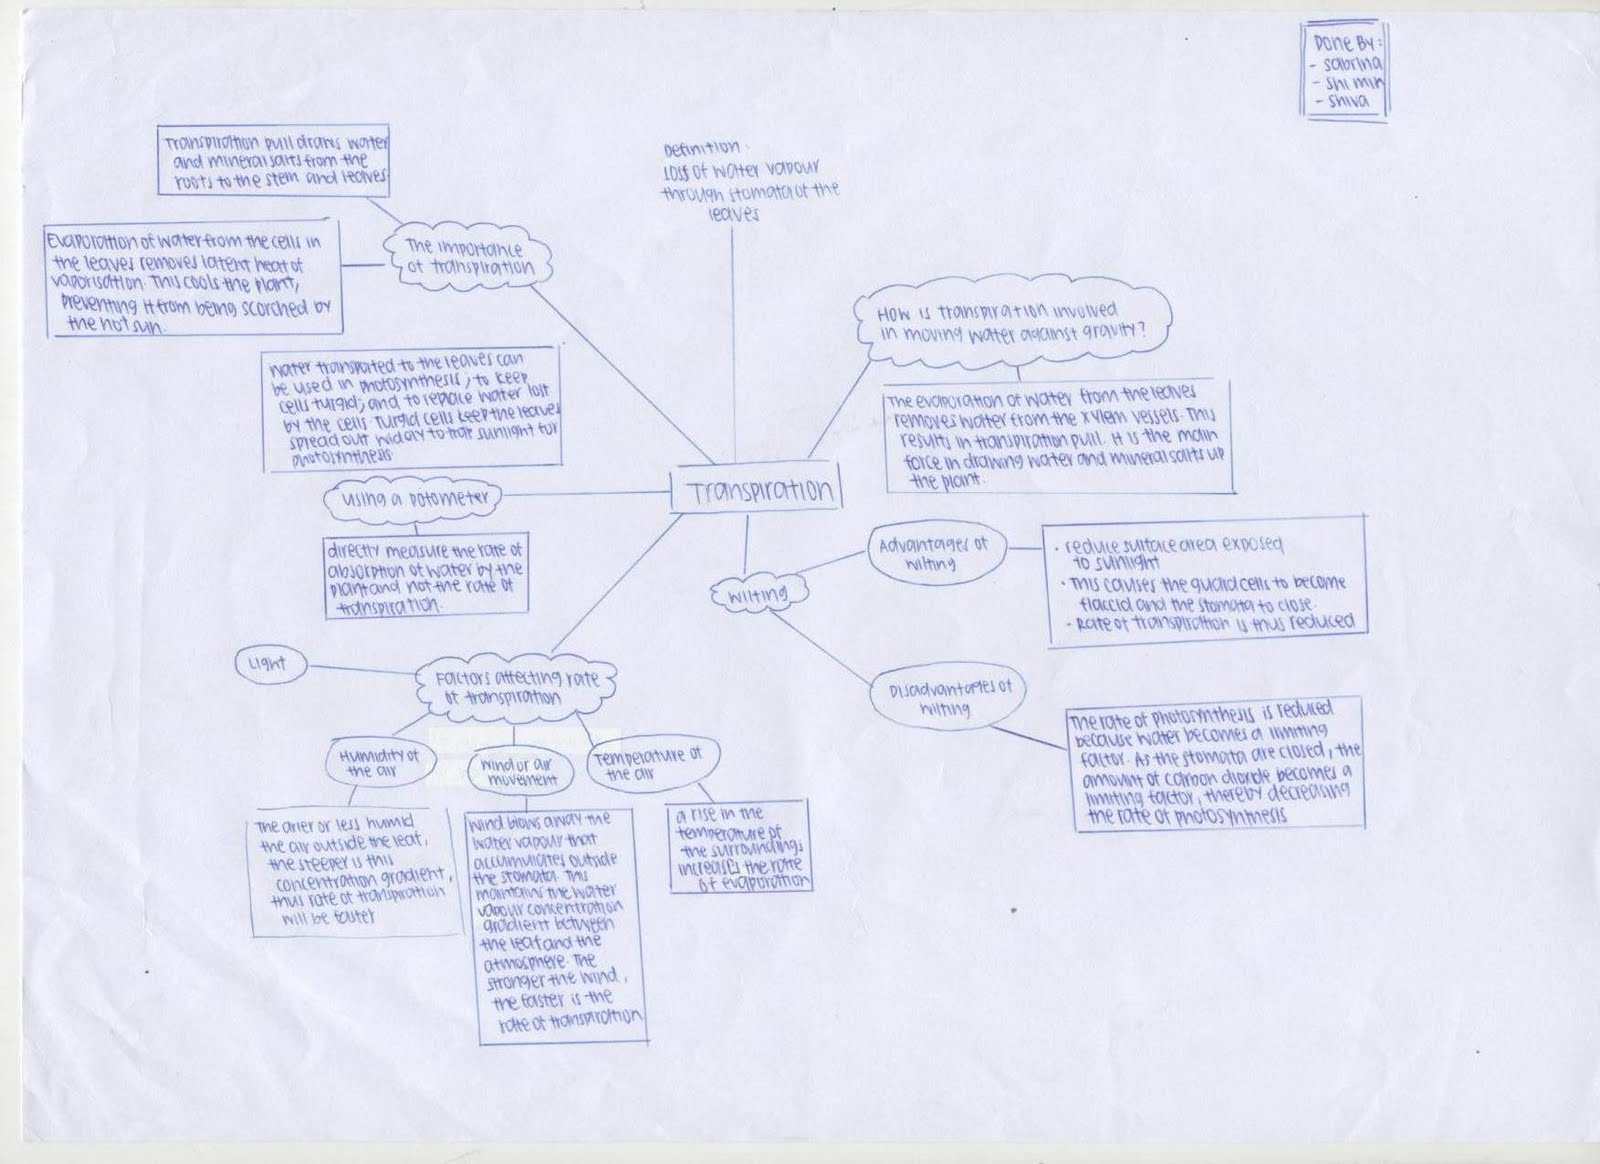 Done By:
- sabrina
- shi min
- shiva
Transpiration pull draws water
and mineral salts from the
roots to the stem and leaves
Definition:
Loss of water vapour
through stomata of the
leaves
Evaporation of water from the cells in
the leaves removes latent heat of
vaporisation. This cools the plant,
preventing it from being scorched by
the hot sun.
The importance
of transpiration
How is transpiration involved
in moving water against gravity?
water transported to the leaves can
be used in photosynthesis; to keep
cells turgid; and to replace water lost
by the cells. Turgid cells keep the leaves
spread out widely to trap sunlight for
photosynthesis
The evaporation of water from the leaves
removes water from the xylem vessels. This
results in transpiration pull. It is the main
force in drawing water and mineral salts up
the plant.
Transpiration
using a potometer
directly measure the rate of
absorption of water by the
plant and not the rate of
transpiration.
wilting
Advantages of
wilting
• reduce surface area exposed
to sunlight
• This causes the guard cells to become
flaccid and the stomata to close.
• Rate of transpiration is thus reduced
Disadvantages of
wilting
The rate of photosynthesis is reduced
because water becomes a limiting
factor. As the stomata are closed, the
amount of carbon dioxide becomes a
limiting factor, thereby decreasing
the rate of photosynthesis
Factors affecting rate
of transpiration
Light
Humidity of
the air
The drier or less humid
the air outside the leaf,
the steeper is this
concentration gradient,
thus rate of transpiration
will be faster
Wind or air
movement
Wind blows away the
water vapour that
accumulates outside
the stomata. This
maintains the water
vapour concentration
gradient between
the leaf and the
atmosphere. The
stronger the wind,
the faster is the
rate of transpiration
Temperature of
the air
a rise in the
temperature of
the surroundings
increases the rate
of evaporation